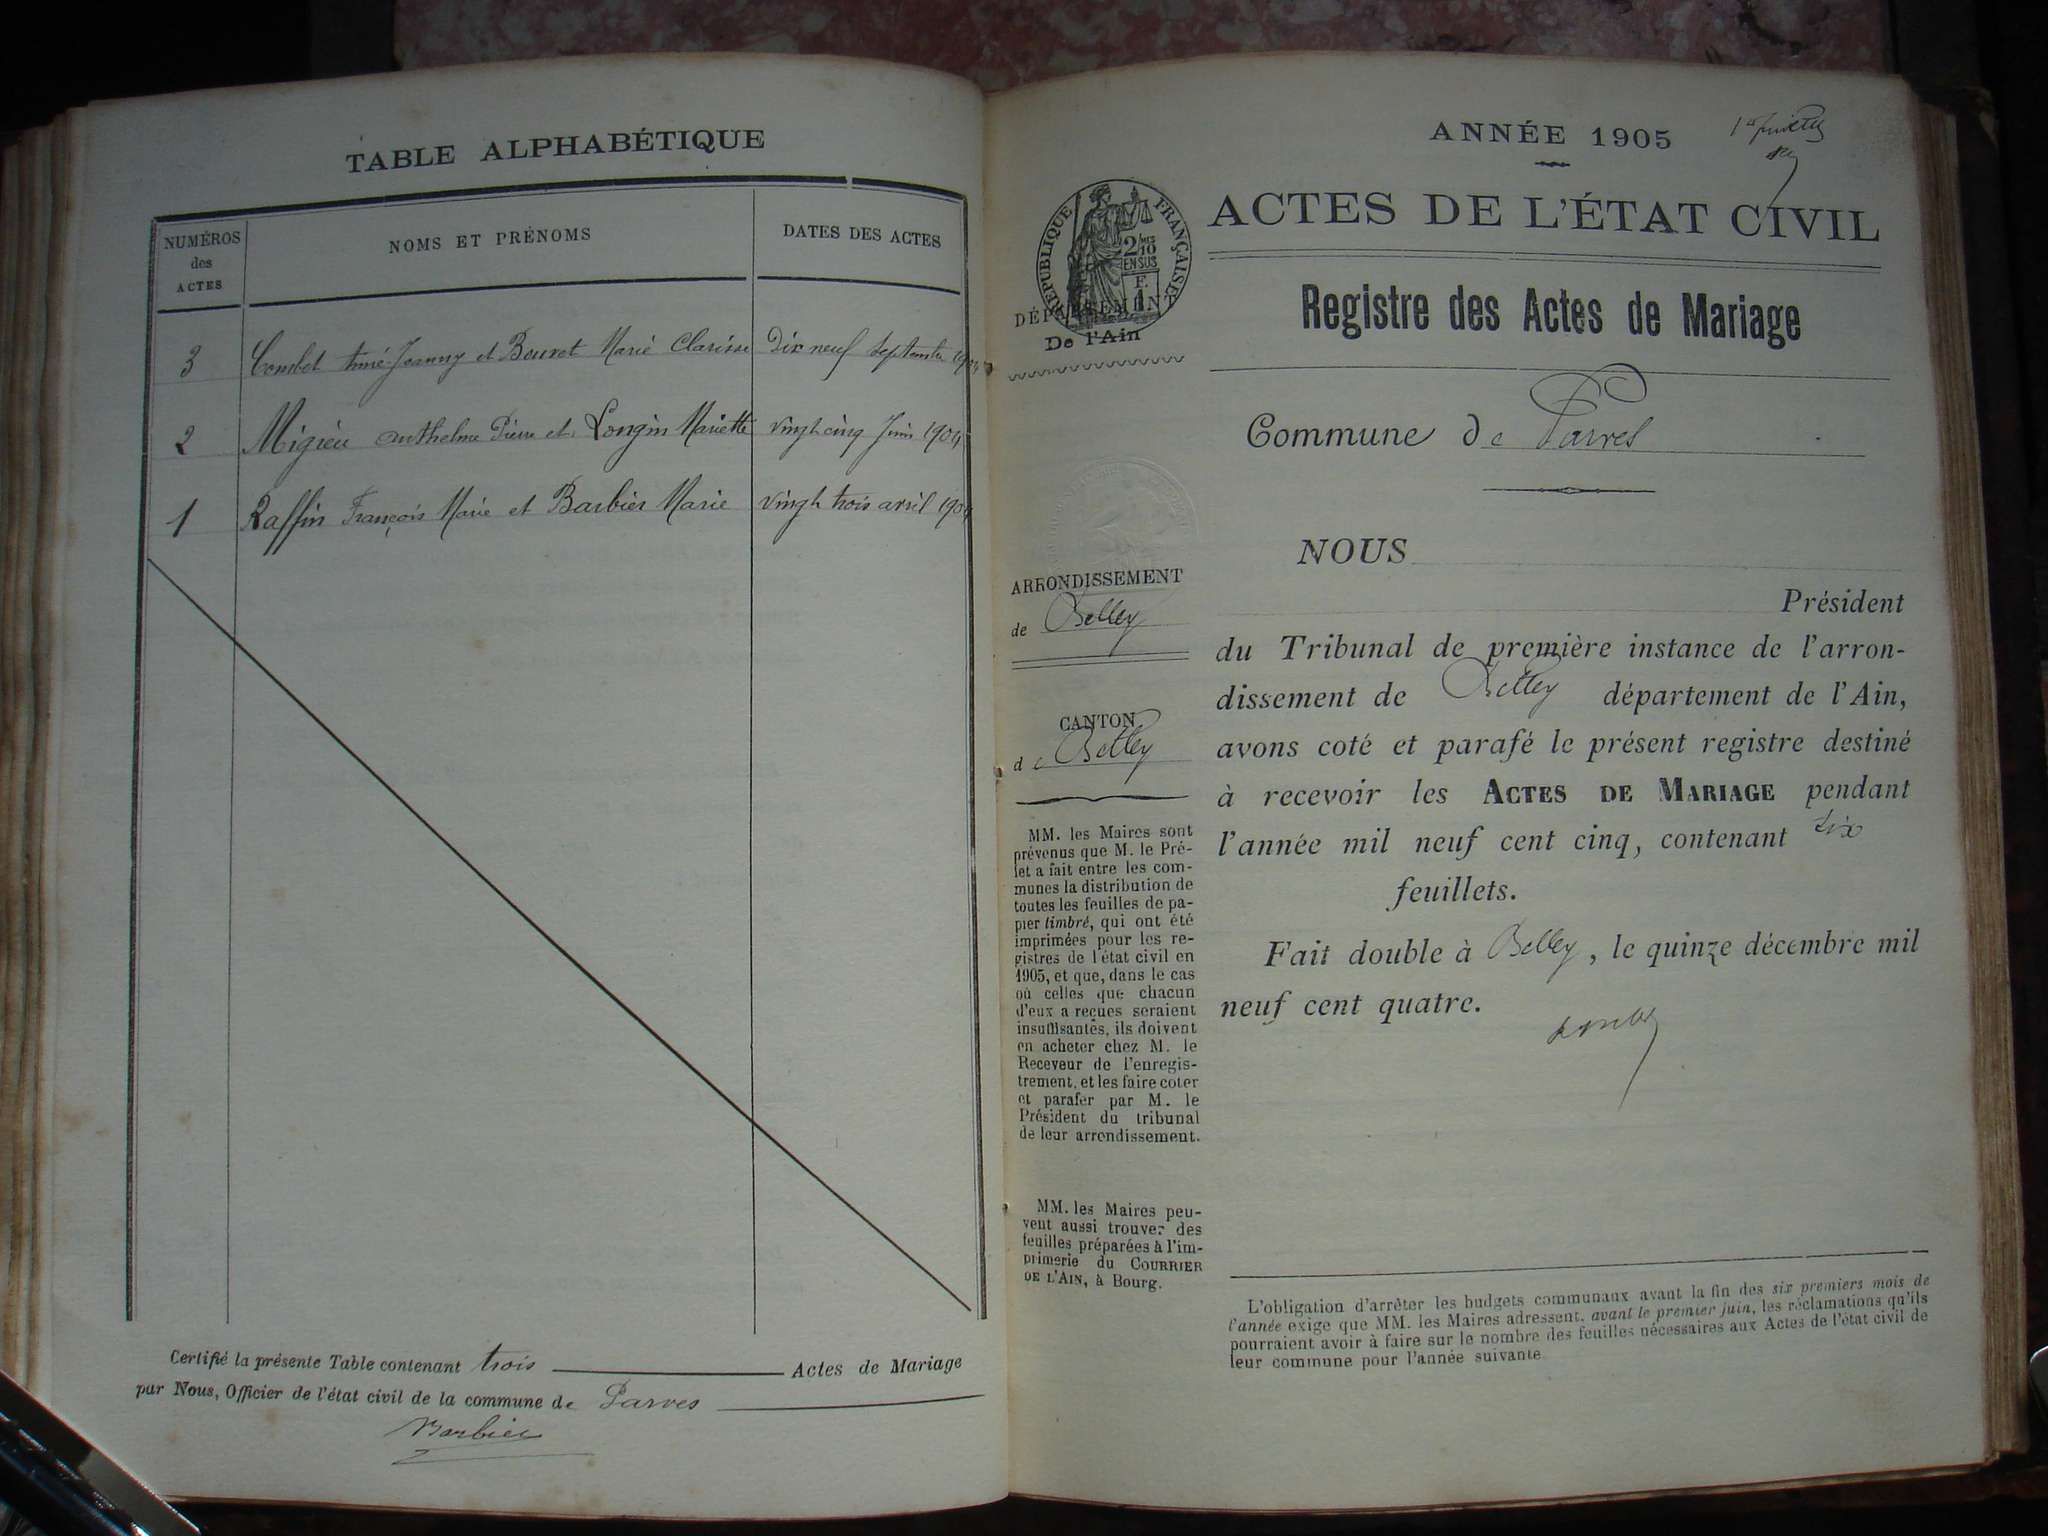 TABLE ALPHABÉTIQUE
NUMÉROS
des
ACTES
NOMS ET PRÉNOMS
DATES DES ACTES
3 Combet Aimé Joanny et Bouvet Marie Clarisse Dix neuf septembre 1904
2 Migieu Anthelme Pierre et Longin Mariette vingt cinq Juin 1904
1 Raffin François Marie et Barbier Marie vingt trois avril 1904
Certifié la présente Table contenant trois Actes de Mariage
par Nous, Officier de l'état civil de la commune de Parves
Barbier
ANNÉE 1905
ACTES DE L'ÉTAT CIVIL
RÉPUBLIQUE FRANÇAISE
2/10
EN SUS
DÉPARTEMENT
De l'Ain
Registre des Actes de Mariage
Commune de Parves
ARRONDISSEMENT
de Belley
CANTON
de Belley
MM. les Maires sont
prévenus que M. le Pré-
fet a fait entre les com-
munes la distribution de
toutes les feuilles de pa-
pier timbré, qui ont été
imprimées pour les re-
gistres de l'état civil en
1905, et que, dans le cas
où celles que chacun
d'eux a reçues seraient
insuffisantes, ils doivent
en acheter chez M. le
Receveur de l'enregis-
trement, et les faire coter
et parafer par M. le
Président du tribunal
de leur arrondissement.
MM. les Maires peu-
vent aussi trouver des
feuilles préparées à l'im-
primerie du COURRIER
DE L'AIN, à Bourg.
NOUS
Président
du Tribunal de première instance de l'arron-
dissement de Belley département de l'Ain,
avons coté et parafé le présent registre destiné
à recevoir les ACTES DE MARIAGE pendant
l'année mil neuf cent cinq, contenant six
feuillets.
Fait double à Belley, le quinze décembre mil
neuf cent quatre.
L'obligation d'arrêter les budgets communaux avant la fin des six premiers mois de
l'année exige que MM. les Maires adressent, avant le premier juin, les réclamations qu'ils
pourraient avoir à faire sur le nombre des feuilles nécessaires aux Actes de l'état civil de
leur commune pour l'année suivante